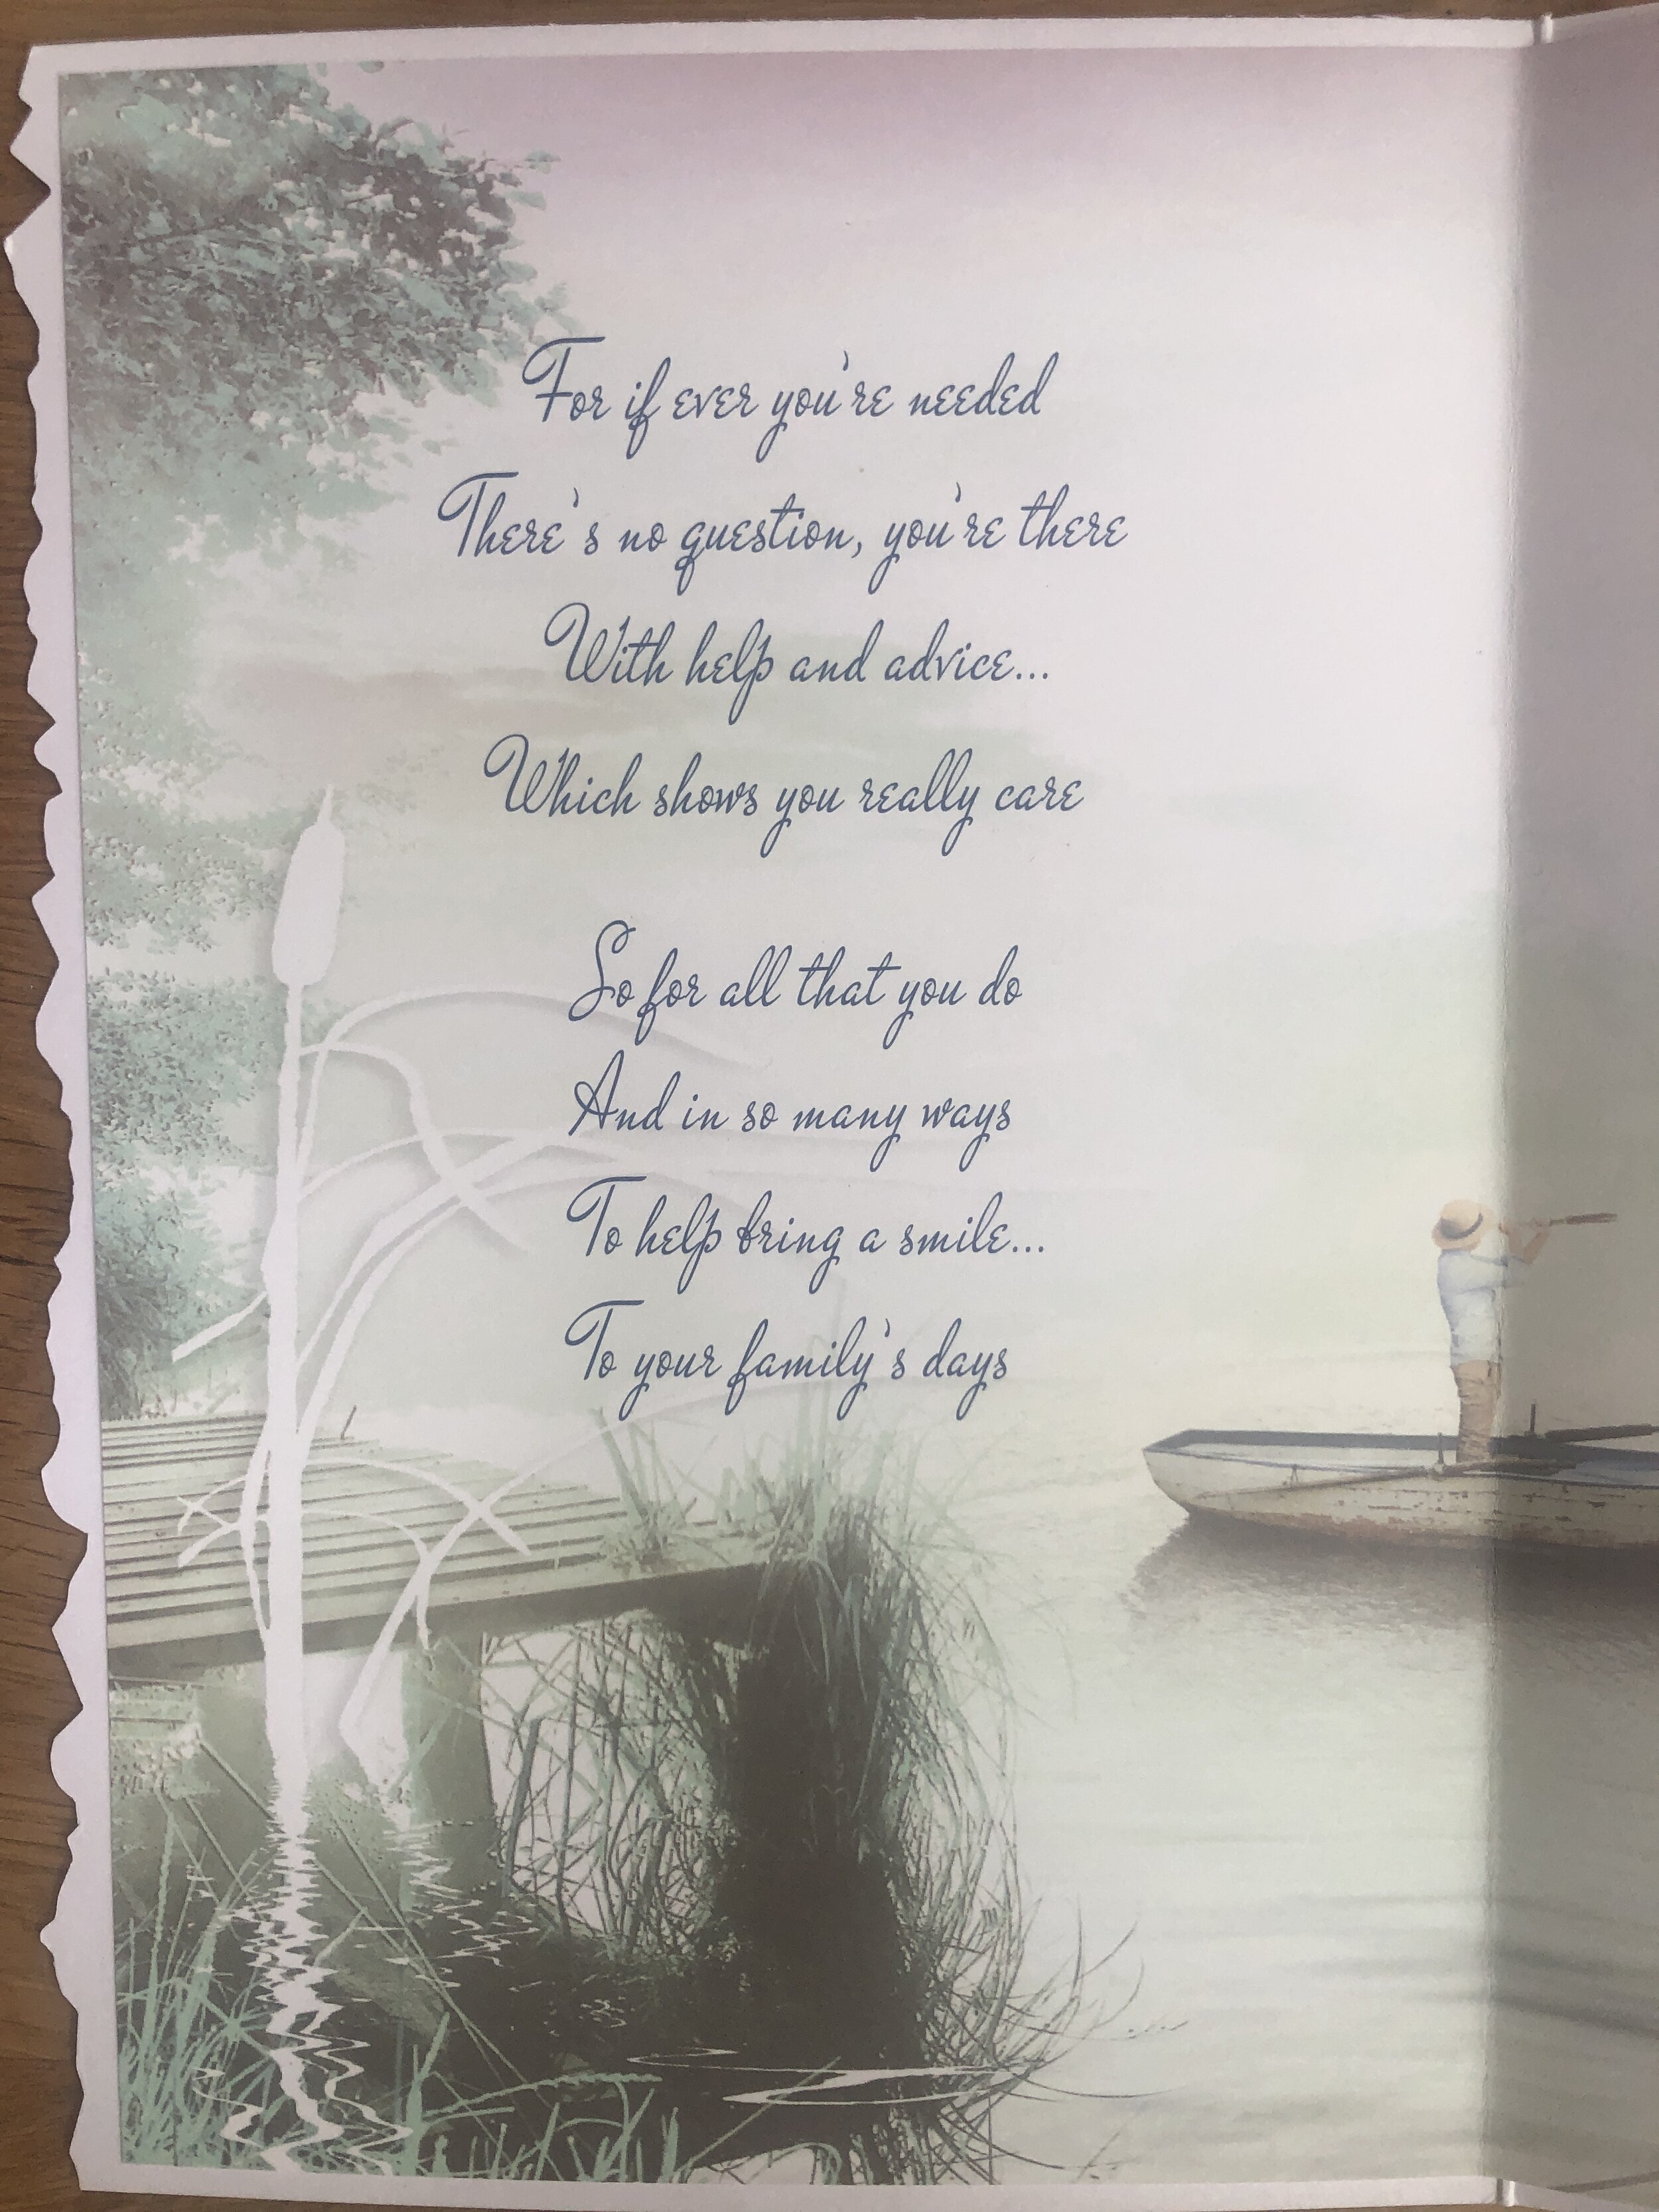 For if ever you're needed
There's no question, you're there
With help and advice...
Which shows you really care
So for all that you do
And in so many ways
To help bring a smile...
To your family's days